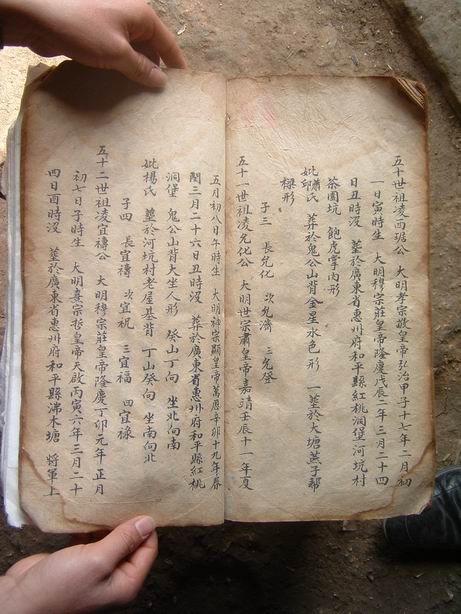 五十世祖凌西琚公 大明孝宗敬皇帝弘治甲子十七年二月初
一日寅時生 大明穆宗莊皇帝隆慶戊辰二年三月二十四
日丑時沒 塟於廣東省惠州府和平縣紅桃洞堡河坑村
茶園坑 飽虎掌內形
妣邱蕭氏 葬於鬼公山背金星水色形 一塟於大塘蕉子鄣
樑形
子三 長允化 次允濟 三允登
五十一世祖凌允化公 大明世宗肅皇帝嘉靖壬辰十一年夏
五月初八日午時生 大明神宗顯皇帝萬厯辛卯十九年春
閏三月二十六日丑時沒 葬於廣東省惠州府和平縣紅桃
洞堡 鬼公山背大坐人形 癸山丁向 坐北向南
妣楊氏 塟於河坑村老屋基背 丁山癸向 坐南向北
子四 長宜禱 次宜祝 三宜福 四宜祿
五十二世祖凌宜禱公 大明穆宗莊皇帝隆慶丁卯元年正月
初七日子時生 大明熹宗悊皇帝天啟丙寅六年三月二十
四日酉時沒 塟於廣東省惠州府和平縣沸水塘 將軍上